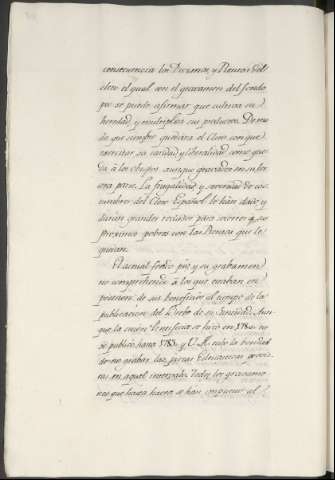 consecuencia los Diezmos, y Rentas del
clero el qual con el gravamen del fondo
pio se puede afirmar que cultiva su
heredad, y multiplica sus productos. De mo
do que siempre quedará el Clero con que
exercitar su caridad y liberalidad como que
da à los obispos aunque gravados en su ter
cera parte. La frugalidad, y severidad de cos
tumbres del Clero Español le hàn dado, y
daràn grandes recursos para socorrer a su
proximo pobre con las Rentas que le
quedan.
El actual fondo pio, y su grabamen
no comprehende à los que estaban en
posesion de sus beneficios al tiempo de la
publicacion del Breve de su concesion. Aun
que la union Beneficia se hizo en 1780 no
se publicò hasta 1783, y V. M. tubo la bondad
de no grabar las piezas Eclesiasticas provis
tas en aquel intervalo. Todos los gravame
nes que hasta haora se han impuesto al